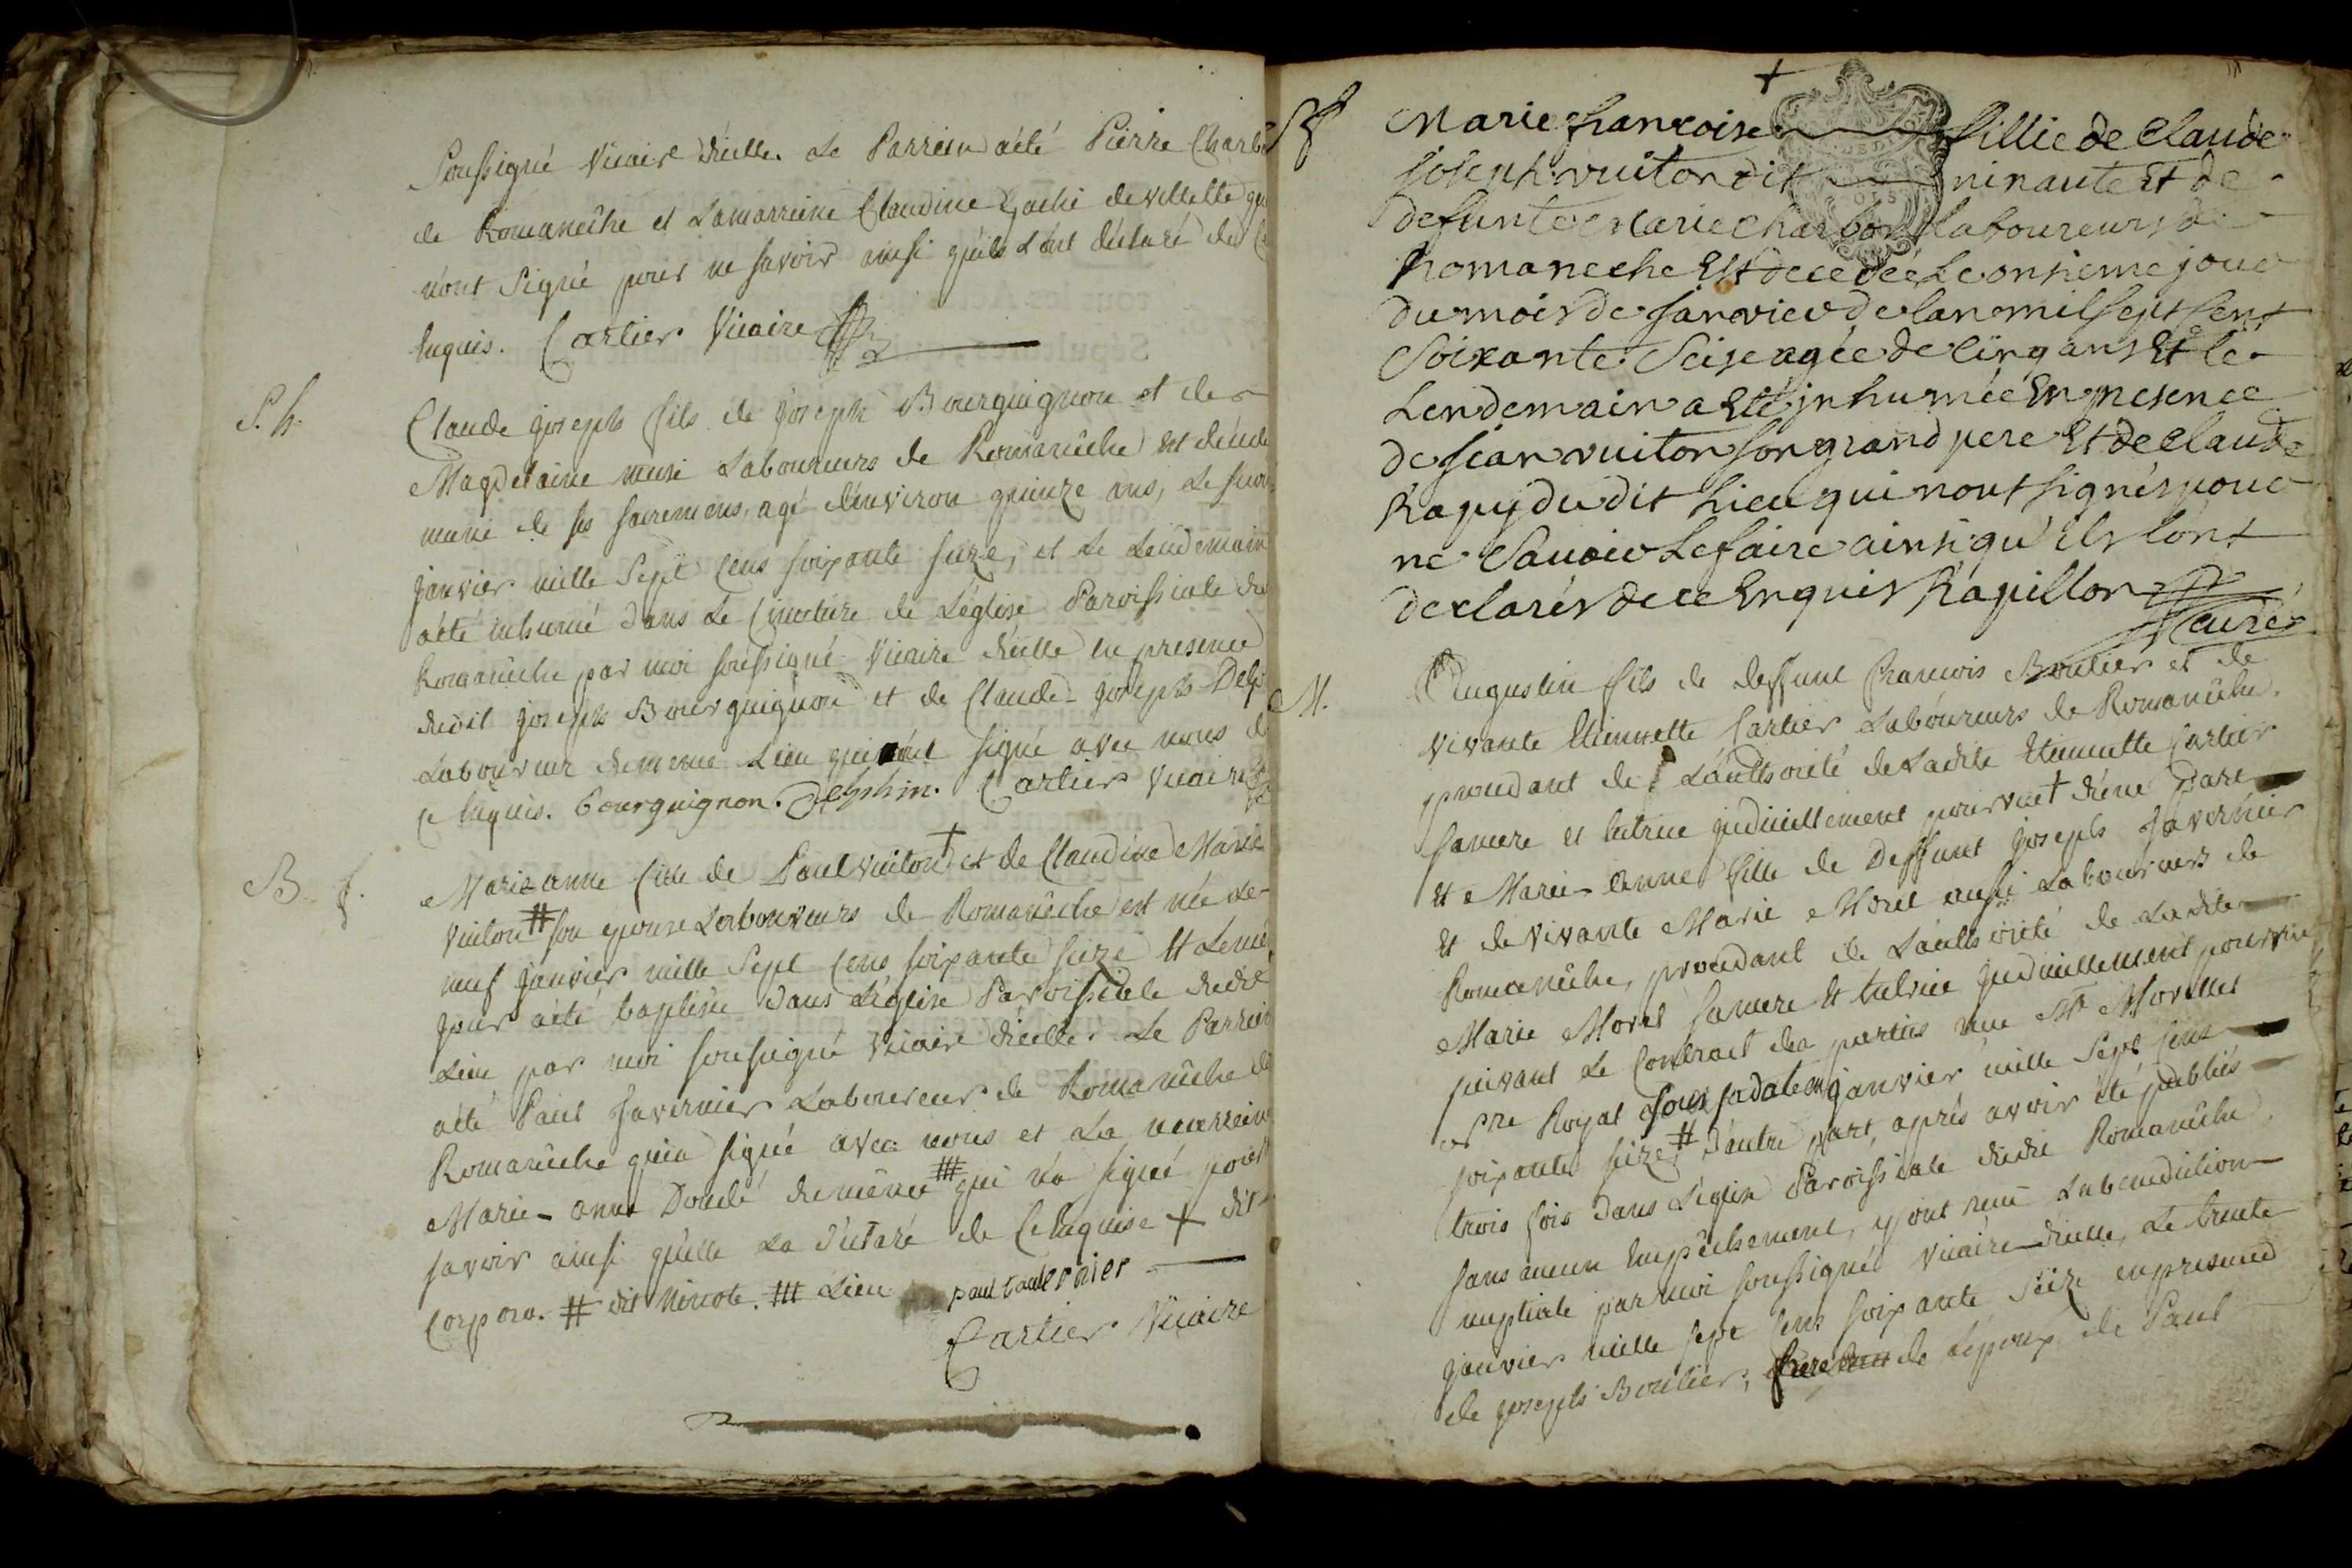 Soussigné Vicaire d'icelle. Le Parrein a été Pierre Charb
de Romanêche et La marreine Claudine Gaché de villette qu
n'ont Signé pour ne savoir ainsi qu'ils L'ont déclaré de C
Enquis. Cartier Vicaire
S. h.
Claude joseph fils de joseph Bourguignon et de
Magdelaine Labourreurs de Romanêche est décéde
muni de ses sacremens, agé d'environ quinze ans, Le
janvier mille Sept Cens soixante seize, et Le Lendemain
a été inhumé dans Le Cimetiére de L'église Paroissiale du
Romanêche par moi soussigné Vicaire d'icelle en presence
dudit joseph Bourguignon et de Claude-joseph Delp
Laboureur du meme Lieu qui ont signé avec nous d
ce Enquis. bourguignon. Delphin. Cartier Vicaire
B. f.
Marie anne fille de Paul vuiton + et de Claudine Marie
vuiton # son epouse Laboureurs de Romanêche est née Le
neuf janvier mille Sept Cens soixante seize Et Le mê
jour a été baptisée dans L'église Paroissiale dudit
Lieu par moi soussigné Vicaire d'icelle. Le Parrein
a été Paul Tavernier Laboureur de Romanêche de
Romanêche qui a signé avec nous et La marreine
Marie-anne Doudé du même ### qui n'a signé pour
savoir ainsi qu'elle La déclaré de Ce Enquise + dit
Corporo. # dit Ninote. ### Lieu paul tavernier
Cartier Vicaire
Sf
+
Marie francoise fillie de Claude
Joseph vuiton dit ninaute Et de
defunte Marie Charbon Laboureurs de
Romaneche Est decedée Le onsieme jour
du mois de janvier de lan mil sept sent
Soixante Seise agée de cinq ans Et le
Lendemain a Eté jnhumée En presence
de jean vuiton son grand pere Et de Claude
Rapuy du dit Lieu qui nont signés pour
ne Savoir Le faire ainsi qu'ils l'ont
declarés de ce Enquis Rapillon
Curé
M.
Augustin fils de deffunt francois Boutier et de
vivante Etiennette Cartier Laboureurs de Romanêche.
procedant de L'aûthorité de Ladite Etiennette Cartier
sa mere et tutrice judiciellement pourvue + d'une part
Et Marie-Anne fille de Deffunt joseph Tavernier
Et de vivante Marie Morel aussi Laboureurs de
Romanêche, procedant de L'aûthorité de Ladite
Marie Morel sa mere Et tutrice judiciellement pourvue
suivant Le Contract des parties reçu Mr Morellet
nre Royal sous sa date en janvier mille Sept Cent
soixante seize # d'autre part, après avoir été publiés
trois fois dans L'église Paroissiale dudit Romanêche
sans aucun Empêchement, y ont reçu La benediction
nuptiale par moi soussigné Vicaire d'icelle, Le trente
janvier mille sept Cens soixante Seize en presence
de joseph Boutier, frere de L'epoux de Paul